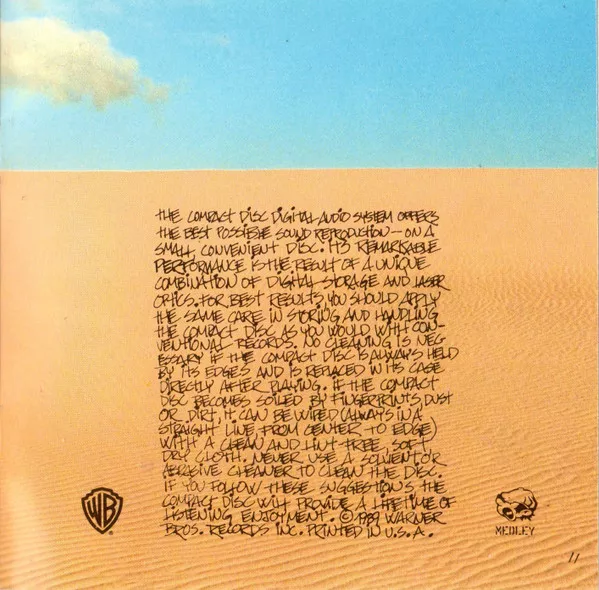 THE COMPACT DISC DIGITAL AUDIO SYSTEM OFFERS
THE BEST POSSIBLE SOUND REPRODUCTION — ON A
SMALL, CONVENIENT DISC. ITS REMARKABLE
PERFORMANCE IS THE RESULT OF A UNIQUE
COMBINATION OF DIGITAL STORAGE AND LASER
OPTICS. FOR BEST RESULTS, YOU SHOULD APPLY
THE SAME CARE IN STORING AND HANDLING
THE COMPACT DISC AS YOU WOULD WITH CON-
VENTIONAL RECORDS. NO CLEANING IS NEC-
ESSARY IF THE COMPACT DISC IS ALWAYS HELD
BY ITS EDGES AND IS REPLACED IN ITS CASE
DIRECTLY AFTER PLAYING. IF THE COMPACT
DISC BECOMES SOILED BY FINGERPRINTS, DUST
OR DIRT, IT CAN BE WIPED (ALWAYS IN A
STRAIGHT LINE, FROM CENTER TO EDGE)
WITH A CLEAN AND LINT FREE, SOFT
DRY CLOTH. NEVER USE A SOLVENT OR
ABRASIVE CLEANER TO CLEAN THE DISC.
IF YOU FOLLOW THESE SUGGESTIONS, THE
COMPACT DISC WILL PROVIDE A LIFETIME OF
LISTENING ENJOYMENT. © 1989 WARNER
BROS. RECORDS INC. PRINTED IN U.S.A.
WB
MEDLEY
11